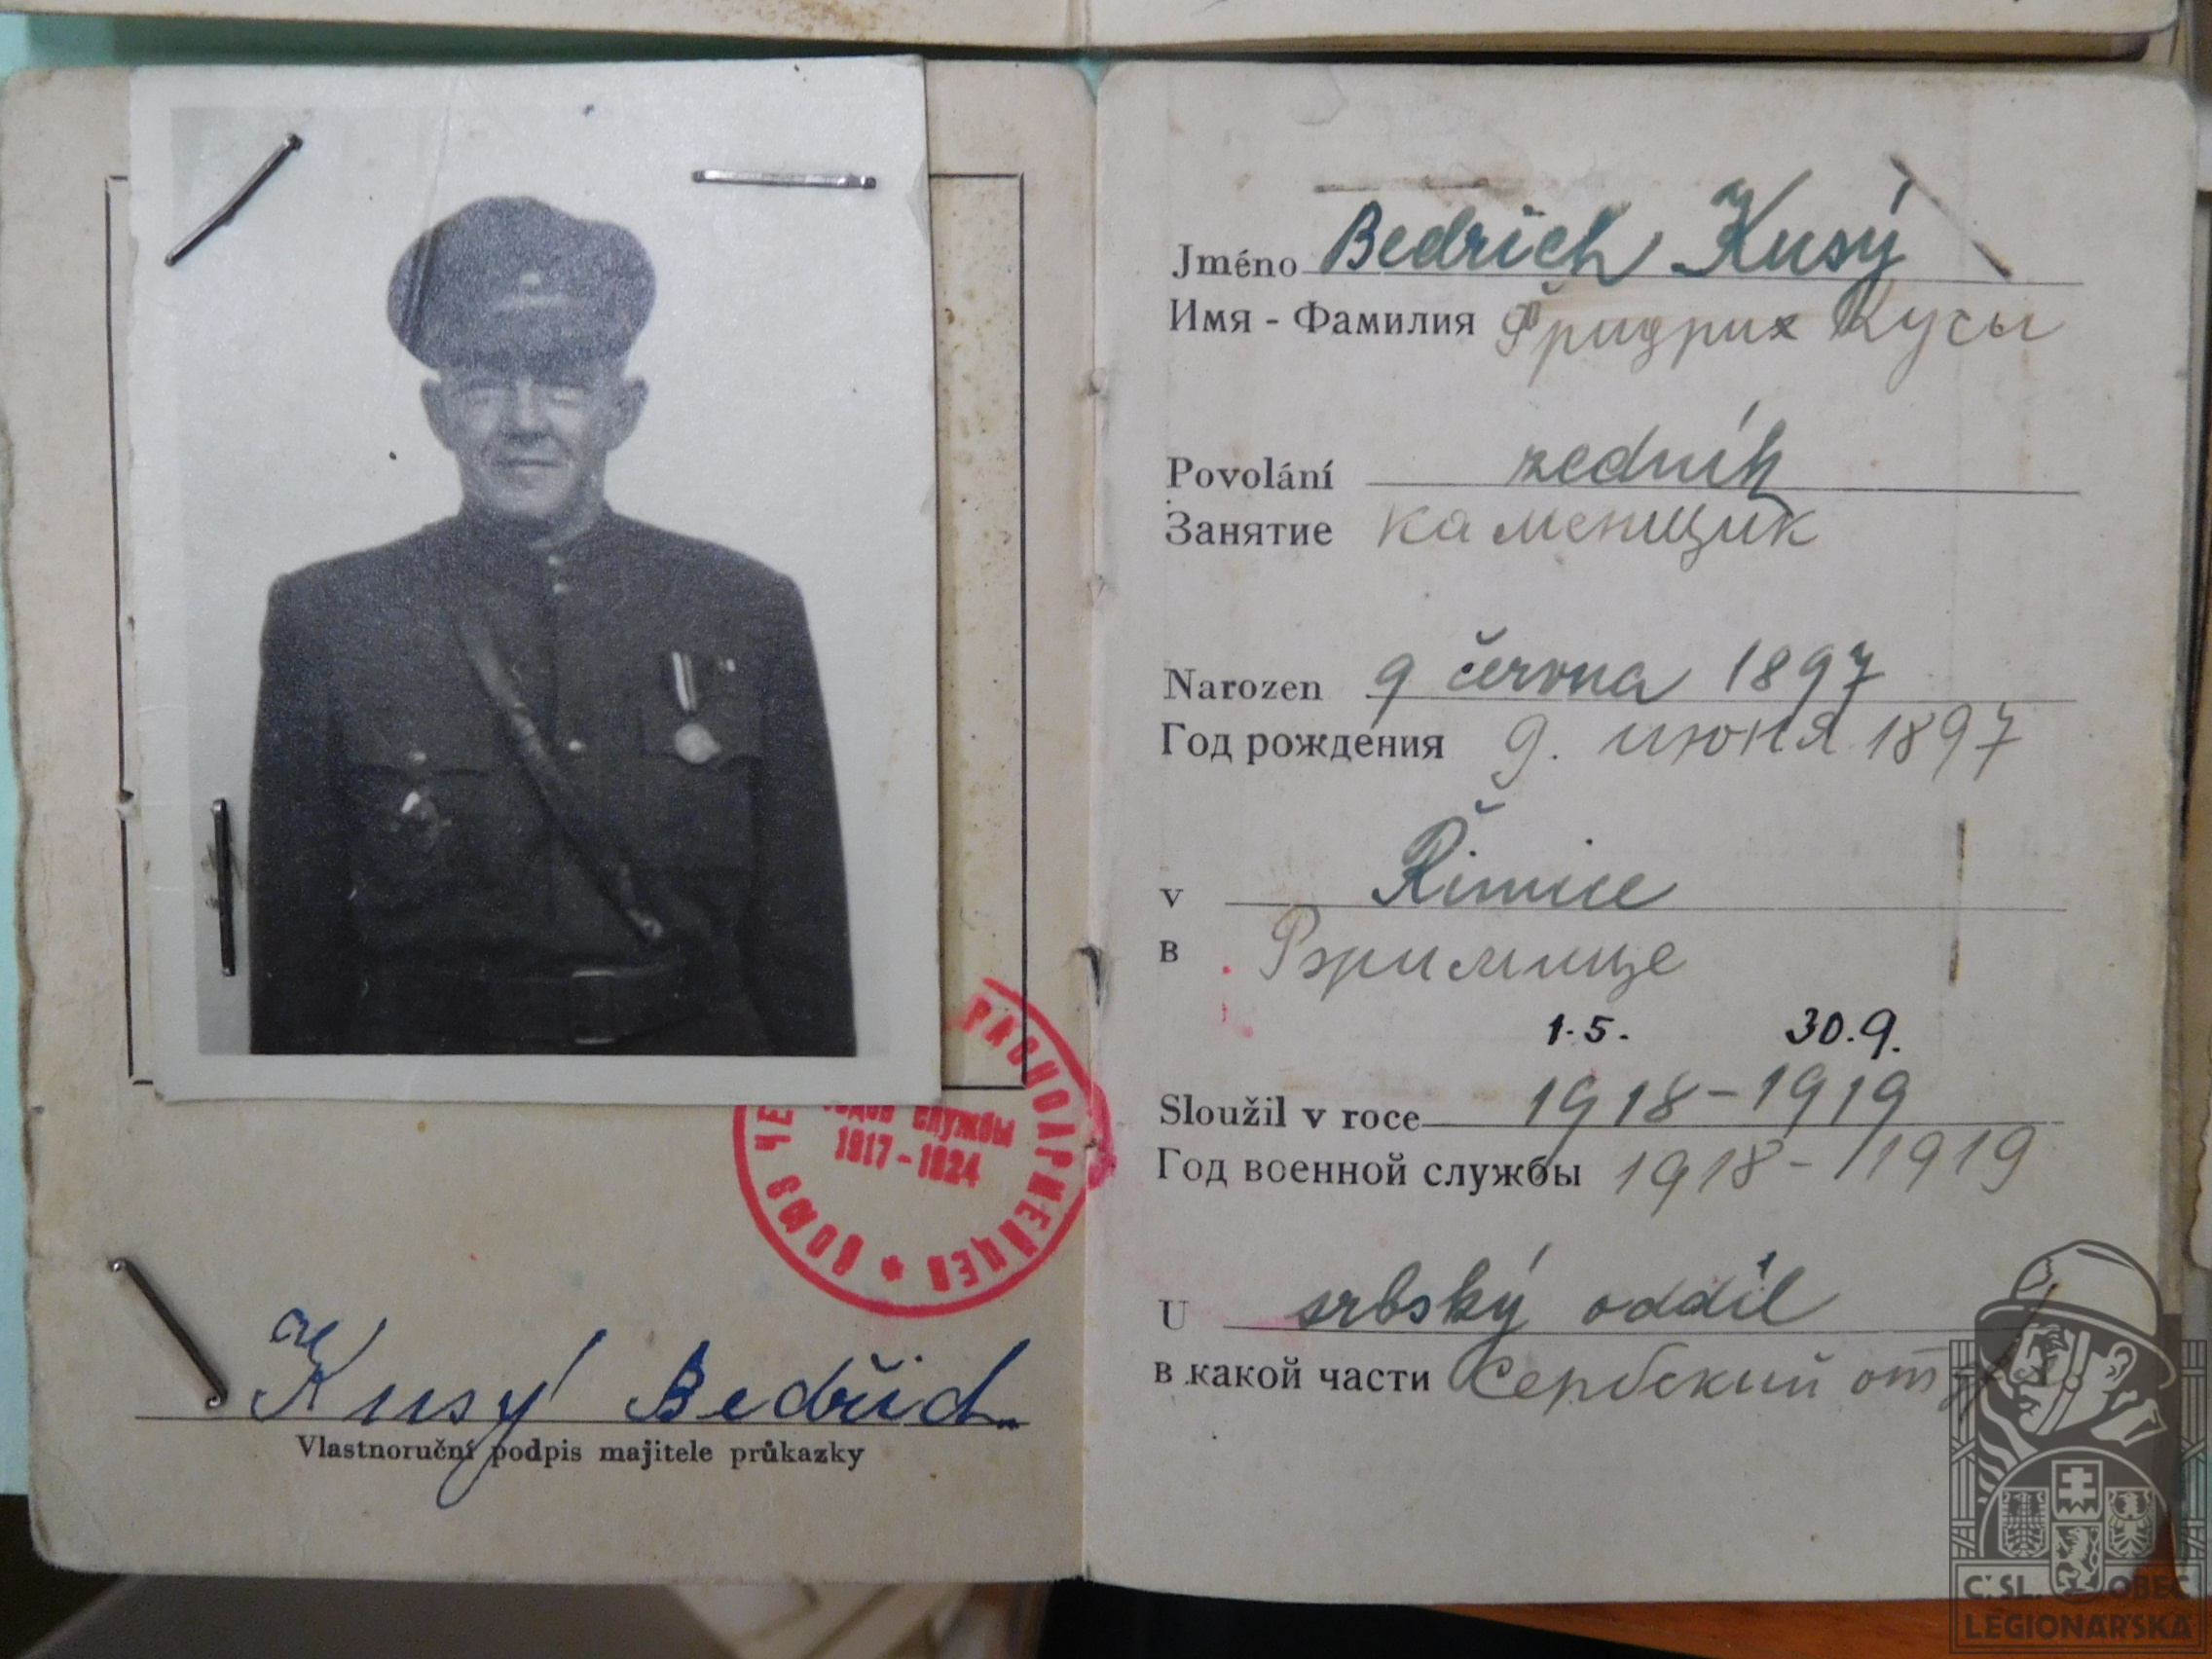 Kusý Bedřich
Vlastnoruční podpis majitele průkazky
РАСНОАРМЕЙЦЕВ * СОЮЗ ЧЕ
годов службы
1917-1924
Jméno Bedřich Kusý
Имя - Фамилия Фридрих Кусы
Povolání zedník
Занятие каменщик
Narozen 9 června 1897
Год рождения 9. июня 1897
v Řimice
в Рэримице
1.5. 30.9.
Sloužil v roce 1918-1919
Год военной службы 1918-1919
U srbský oddíl
в какой части Сербский
Č. SL. OBEC
LEGIONÁŘSKÁ